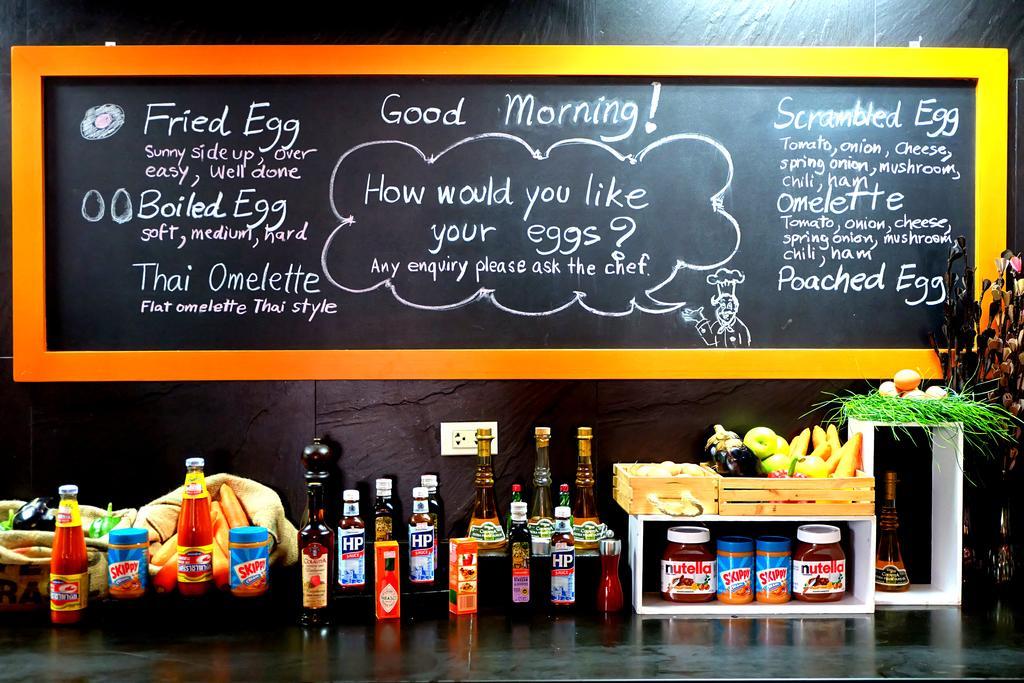 Good Morning!
Fried Egg
Sunny side up, over
easy, Well done
Boiled Egg
soft, medium, hard
Thai Omelette
Flat omelette Thai style
How would you like
your eggs?
Any enquiry please ask the chef.
Scrambled Egg
Tomato, onion, cheese,
spring onion, mushroom,
chili, ham
Omelette
Tomato, onion, cheese,
spring onion, mushroom,
chili, ham
Poached Egg
SKIPPY
SKIPPY
HP
SAUCE
HP
SAUCE
TABASCO
HP
nutella
SKIPPY
SKIPPY
nutella